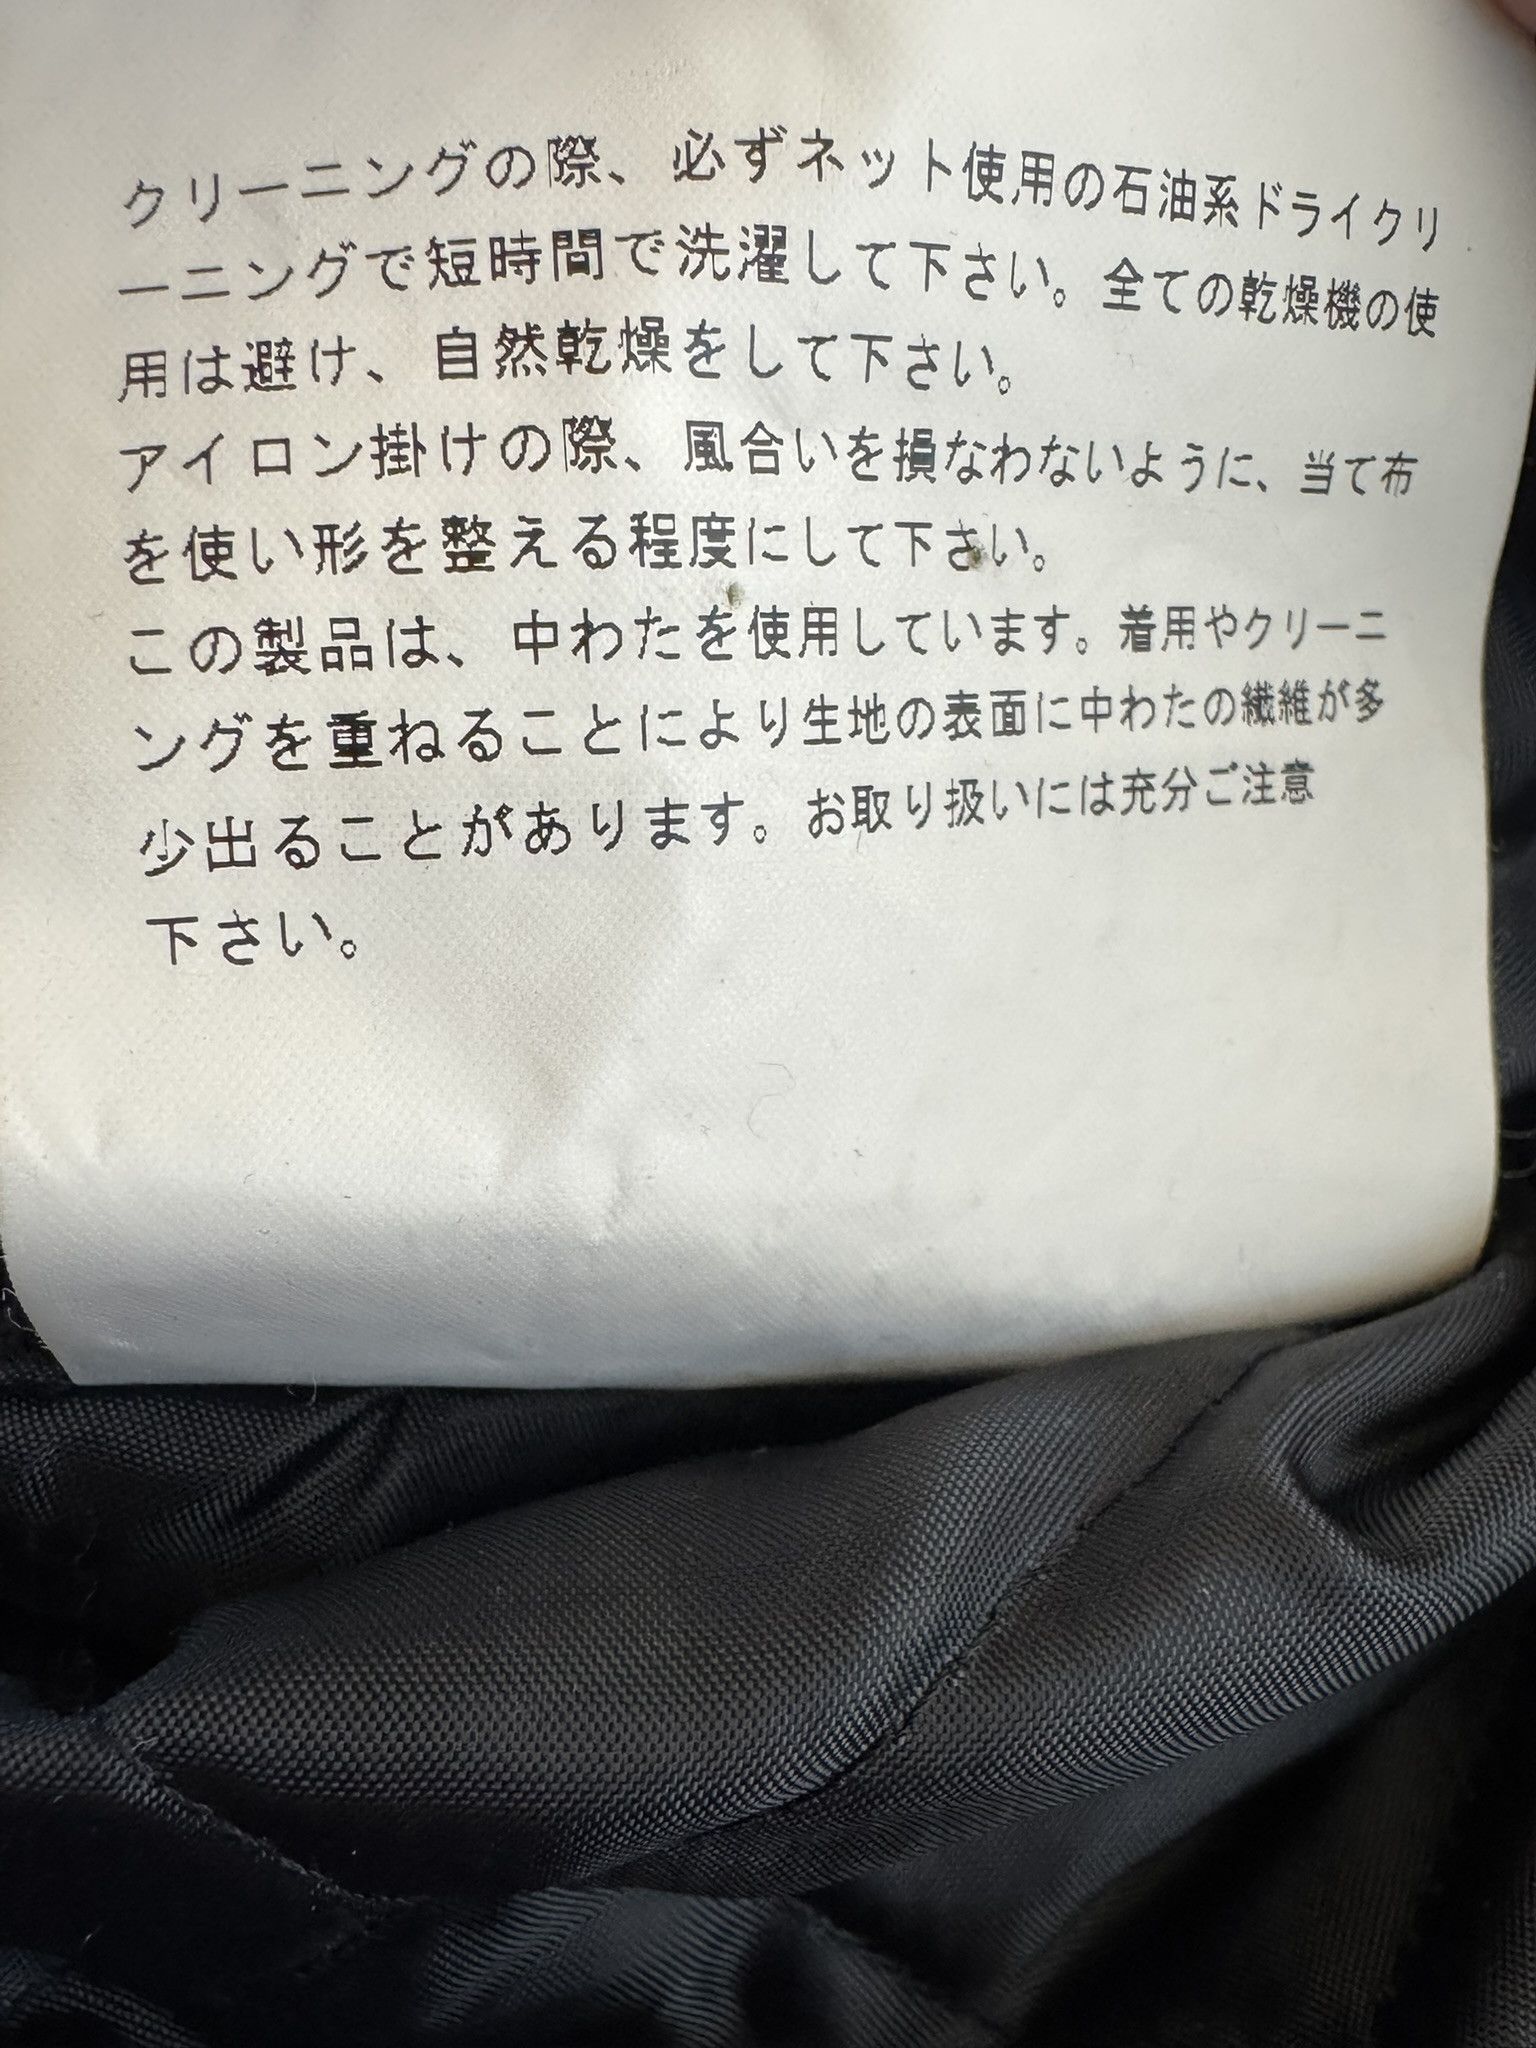 クリーニングの際、必ずネット使用の石油系ドライクリ
ーニングで短時間で洗濯して下さい。全ての乾燥機の使
用は避け、自然乾燥をして下さい。
アイロン掛けの際、風合いを損なわないように、当て布
を使い形を整える程度にして下さい。
この製品は、中わたを使用しています。着用やクリーニ
ングを重ねることにより生地の表面に中わたの繊維が多
少出ることがあります。お取り扱いには充分ご注意
下さい。